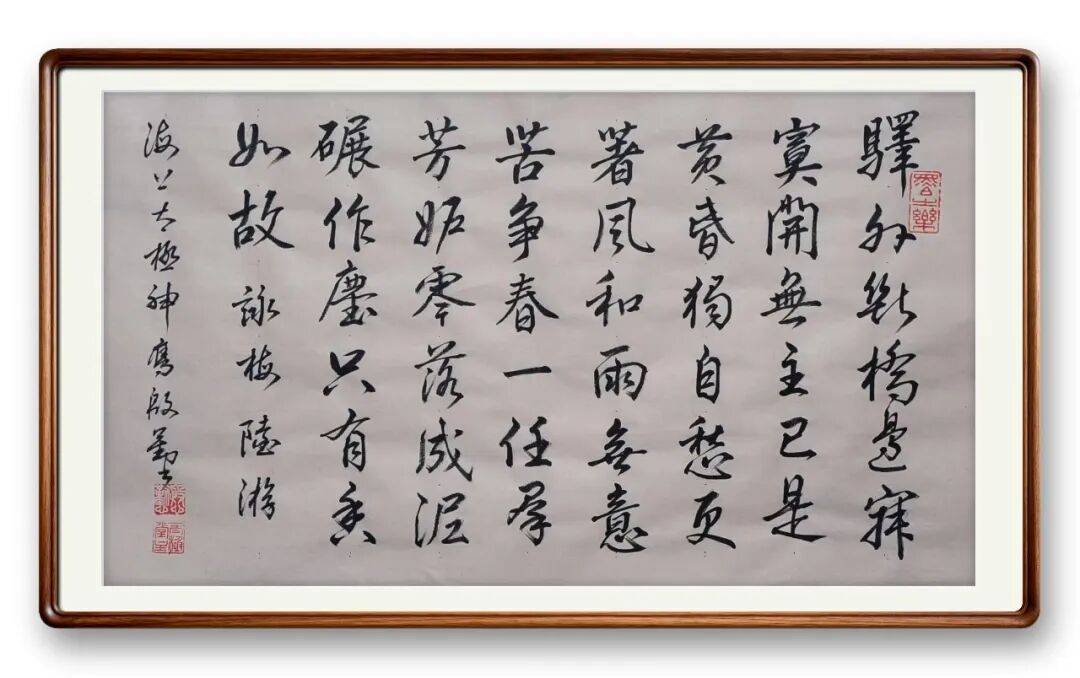 驛外斷橋邊寂
寞開無主已是
黃昏獨自愁更
著風和雨無意
苦爭春一任羣
芳妒零落成泥
碾作塵只有香
如故 詠梅 陸游
海上太極神鷹殷